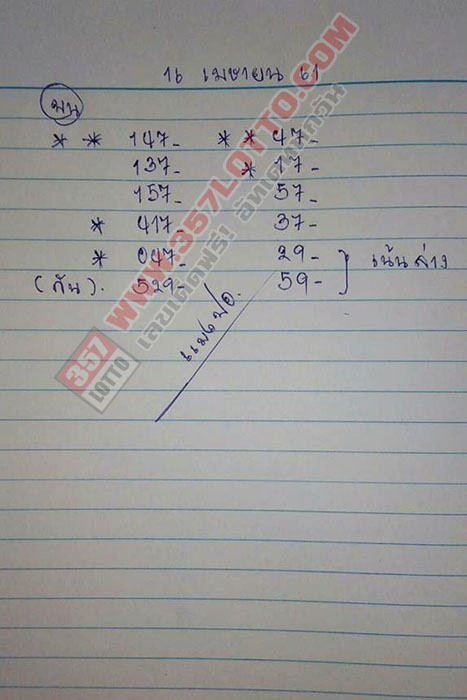 16 เมษายน 61
บน
* * 147- * * 47-
137- * 17-
157- 57-
* 417- 37-
* 047- 29-
(กัน). 529- 59- } เน้นล่าง
357 LOTTO
WWW.357LOTTO.COM
เลขเด็ดฟรี! อัพเดททุกวัน